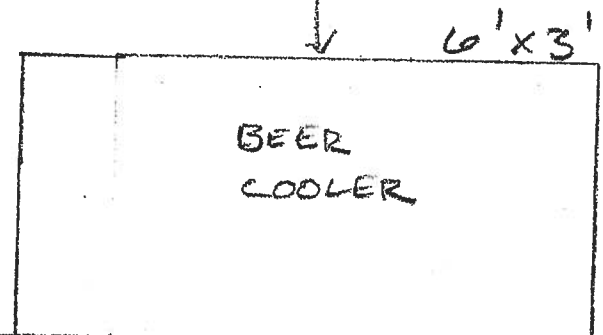 6'x3'
BEER
COOLER